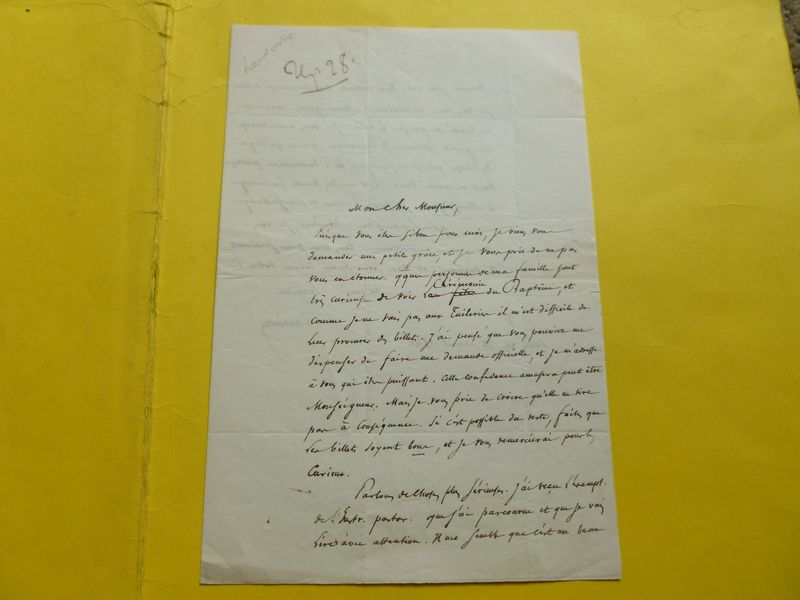 28.
Mon cher Monsieur,
Puisque vous êtes si bon pour moi, je viens vous
demander une petite grâce, et je vous prie de ne pas
vous en étonner. qques personnes de ma famille sont
très curieuses de voir Cérémonie du Baptême, et
comme je ne vais pas aux Tuileries il m'est difficile de
leur procurer des billets. J'ai pensé que vous pouviez me
dispenser de faire une demande officielle, et je m'adresse
à vous qui êtes puissant. Cette confidence amusera peut être
Monseigneur. Mais je vous prie de croire qu'elle ne tire
pas à Conséquence. Si c'est possible du reste, faites que
les billets soyent bons, et je vous remercierai pour les
Curieux.
Parlons de choses plus sérieuses. J'ai reçu l'exempl.
de l'Instr. pastor. que j'ai parcourue et que je vais
lire avec attention. Il me semble que c'est un beau